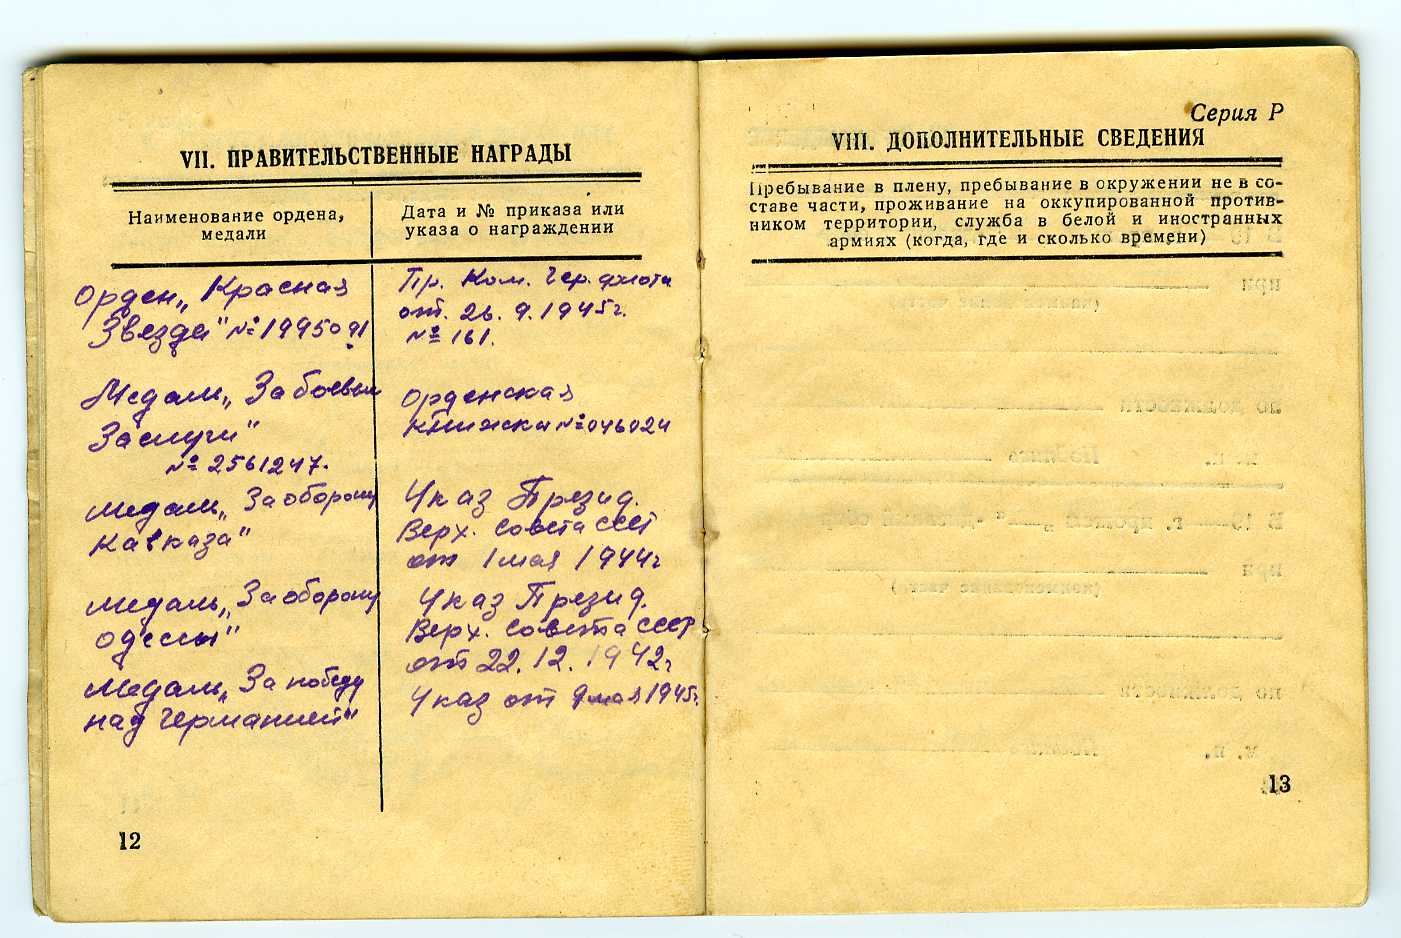 VII. ПРАВИТЕЛЬСТВЕННЫЕ НАГРАДЫ
Наименование ордена,
медали
Дата и № приказа или
указа о награждении
Орден „Красная
Звезда" № 1995091
Пр. Ком. Чер. флота
от. 26. 9. 1945г.
№ 161.
Медаль „За боевые
Заслуги"
№ 2561247.
Орденская
книжка № 046024
Медаль „За оборону
Кавказа"
Указ Презид.
Верх. Совета СССР
от 1 мая 1944г
Медаль „За оборону
Одессы"
Указ Презид.
Верх. Совета СССР
от 22. 12. 1942г
Медаль „За победу
над Германией"
Указ от 9 мая 1945г.
12
Серия Р
VIII. ДОПОЛНИТЕЛЬНЫЕ СВЕДЕНИЯ
Пребывание в плену, пребывание в окружении не в со-
ставе части, проживание на оккупированной против-
ником территории, служба в белой и иностранных
армиях (когда, где и сколько времени)
13